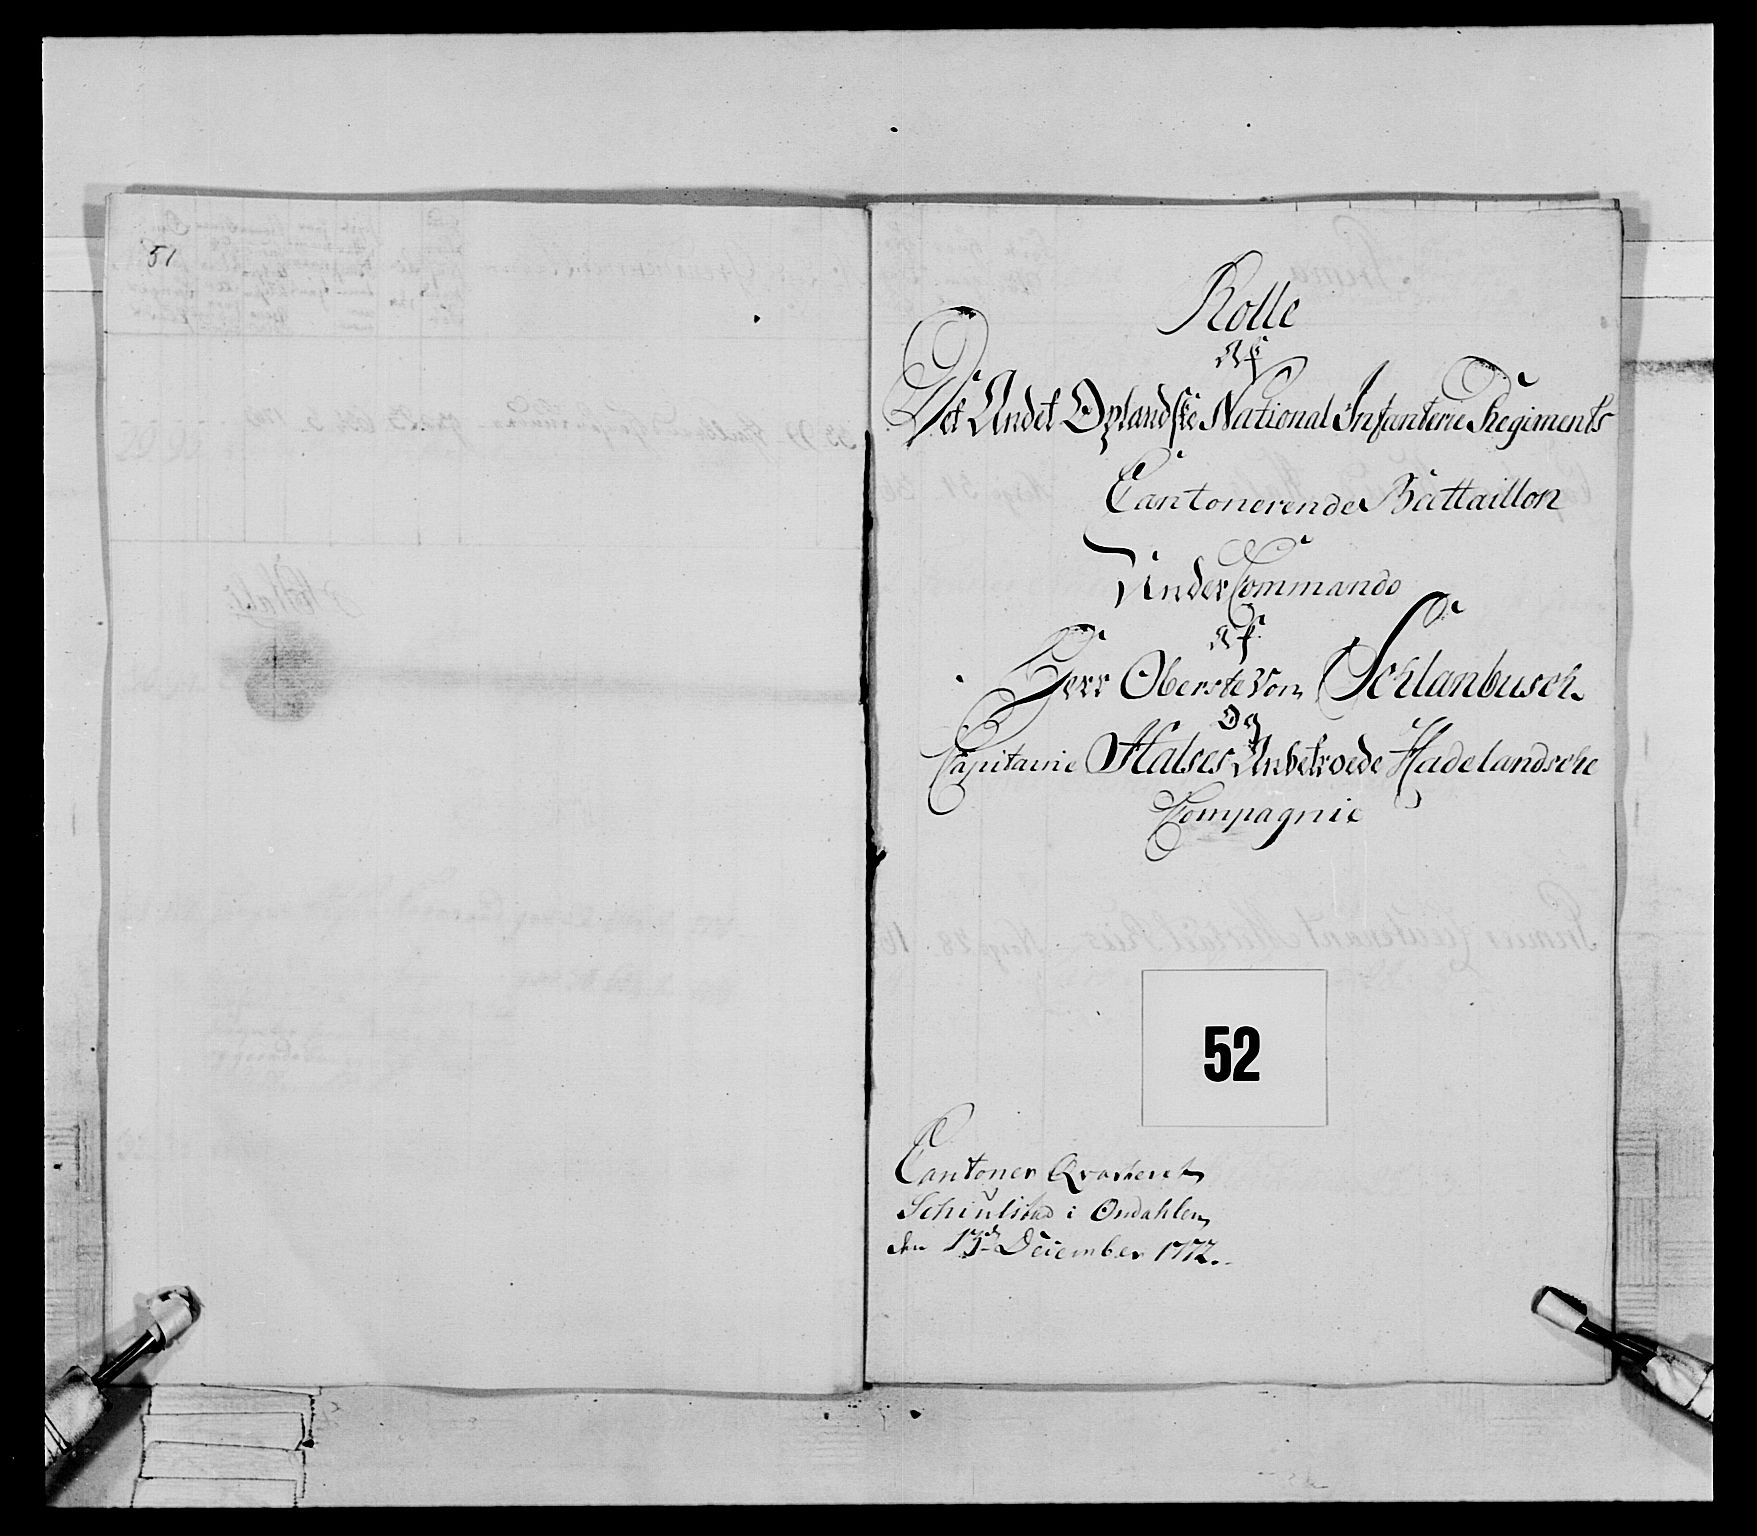 51
Rolle
Af
Det Andet Oplandske National Infanterie Regiments
Cantonerende Battaillon
Under Commando
af
Herr Oberste Von Schlanbusch
Og
Capitaine Halses Anbetroede Hadelandsche
Compagnie
52
Cantoner Qvarteret
i Ondahlen
den December 1772.